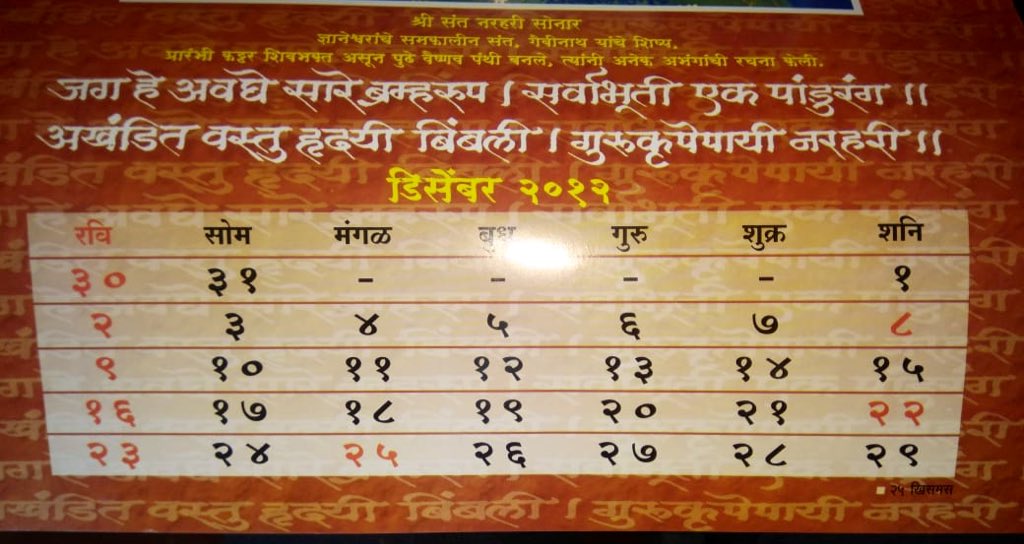 श्री संत नरहरी सोनार
ज्ञानेश्वरांचे समकालीन संत, गैबीनाथ यांचे शिष्य.
प्रारंभी कट्टर शिवभक्त असून पुढे वैष्णव पंथी बनले, त्यांनी अनेक अभंगांची रचना केली.
जग हे अवघे सारे ब्रम्हरुप । सर्वाभूती एक पांडुरंग ।।
अखंडित वस्तु हृदयी बिंबली । गुरुकृपेपायी नरहरी ।।
डिसेंबर २०१२
रवि सोम मंगळ बुध गुरु शुक्र शनि
३० ३१ – – – – १
२ ३ ४ ५ ६ ७ ८
९ १० ११ १२ १३ १४ १५
१६ १७ १८ १९ २० २१ २२
२३ २४ २५ २६ २७ २८ २९
२५ ख्रिसमस